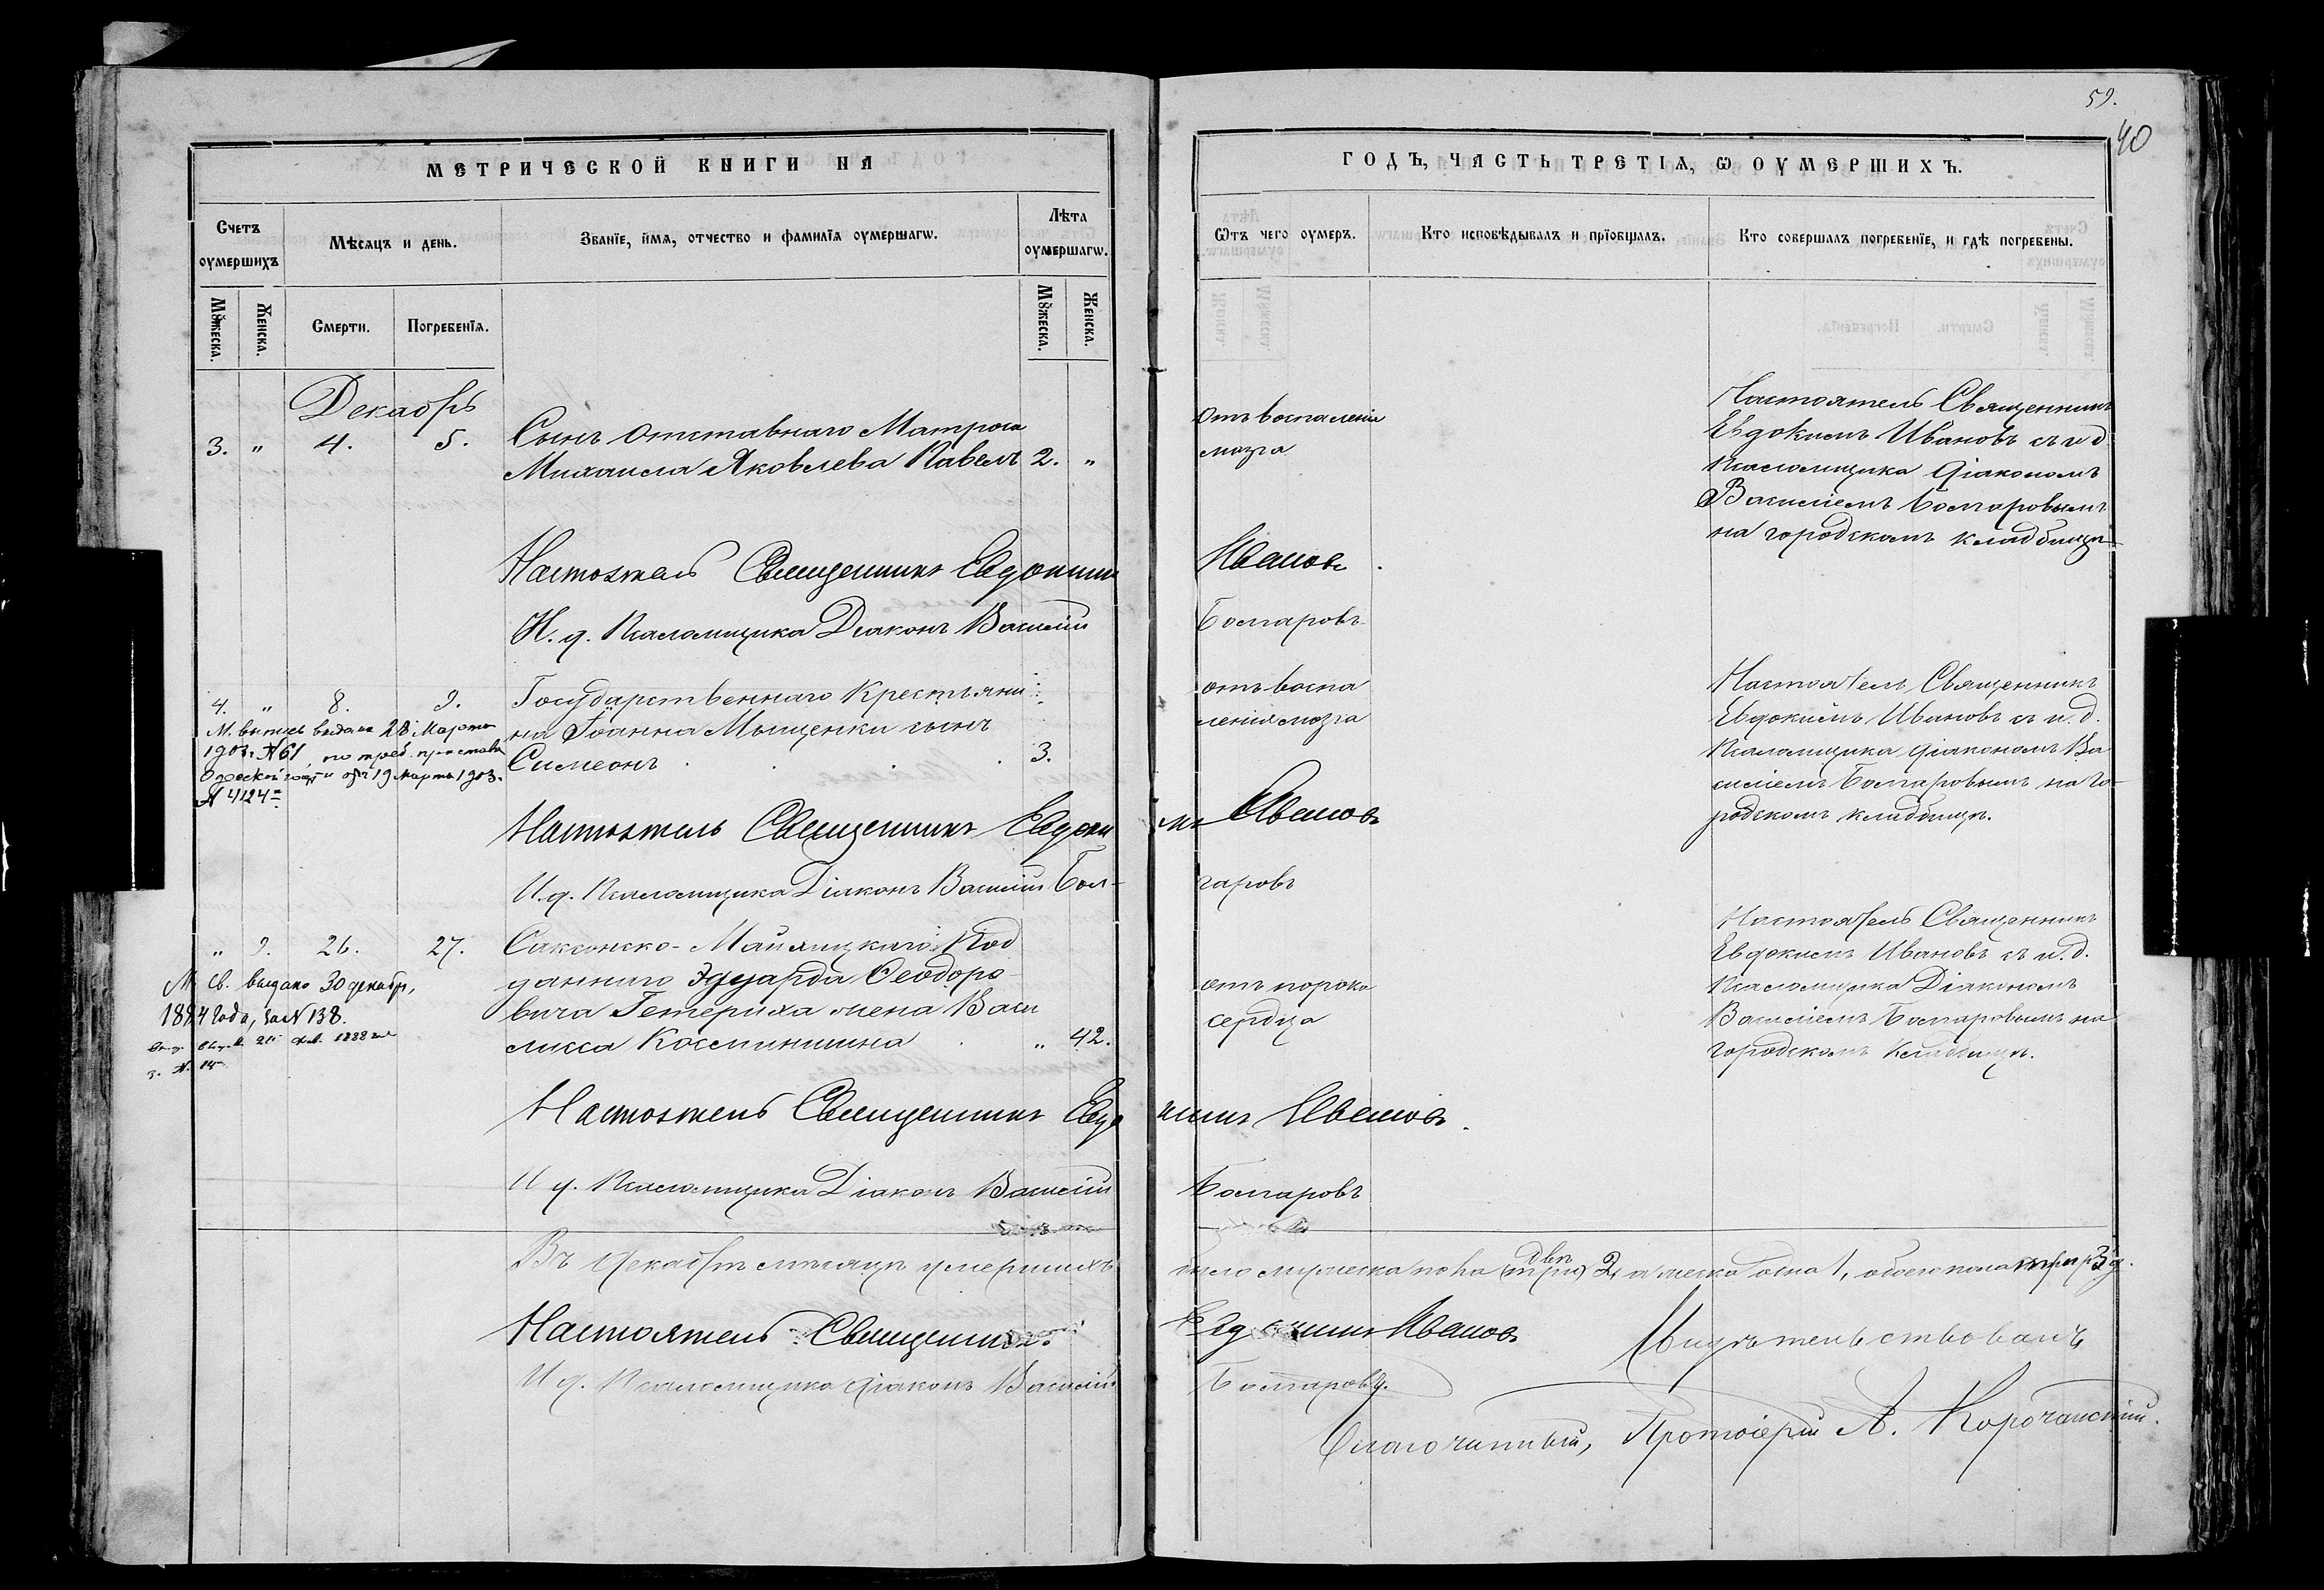 59.
40
МЕТРИЧЕСКОЙ КНИГИ НА
ГОДЪ, ЧАСТЬ ТРЕТІѦ, Ѡ ОУМЕРШИХЪ.
Счетъ оумершихъ
Мѣсяцъ и день.
Званїе, имѧ, отчество и фамилїѧ оумершагѡ.
Лѣта оумершагѡ.
Ѿтъ чего оумеръ.
Кто исповѣдывалъ и прїобщалъ.
Кто совершалъ погребенїе, и гдѣ погребены.
Мꙋжеска.
Женска.
Смерти.
Погребенїѧ.
Мꙋжеска.
Женска.
Декабрь
3. " 4. 5.
Сынъ отставнаго Матроса
Михаила Яковлева Павелъ 2. "
Отъ воспаленія
мозга
Настоятель Священникъ
Евдокимъ Ивановъ съ и д
Псаломщика Діакономъ
Василіемъ Болгаровымъ
на городскомъ кладбищѣ
Настоятель Священникъ Евдокимъ Ивановъ.
И. д. Псаломщика Діаконъ Василій Болгаровъ
4. " 8. 9.
Государственнаго Крестьяни
на Іоанна Мищенки сынъ
Симеонъ 3.
М. выпись выдана 28 Марта
1903 г. № 61, по треб. пристава
Одесской части отъ 19 Марта 1903.
№ 4124
отъ воспа
ленія мозга
Настоятель Священникъ
Евдокимъ Ивановъ съ и. д.
Псаломщика Діакономъ Ва
силіемъ Болгаровымъ на го-
родскомъ кладбищѣ.
Настоятель Священникъ Евдоки мъ Ивановъ
И. д. Псаломщика Діаконъ Василій Бол- гаровъ
" 9. 26. 27.
Саксонско- Под
даннаго Эдуарда Ѳеодоро-
вича Гетериха жена Васи
лисса Космининична " 42.
М. св. выдано 30 декабр,
1884 года, за № 138.
отъ порока
сердца
Настоятель Священникъ
Евдокимъ Ивановъ съ и. д.
Псаломщика Діакономъ
Василіемъ Болгаровымъ на
городскомъ кладбищѣ.
Настоятель Священникъ Евдо кимъ Ивановъ.
И д. Псаломщика Діаконъ Василій Болгаровъ
Въ Декабрѣ мѣсяцѣ умершихъ было мужеска пола два 2, а женска одна 1, обоего пола три 3 д.
Настоятель Священникъ Евдокимъ Ивановъ
И д. Псаломщика Діаконъ Василій Болгаровъ.
Свидѣтельствовалъ
Благочинный, Протоіерей А. Корочанскій.